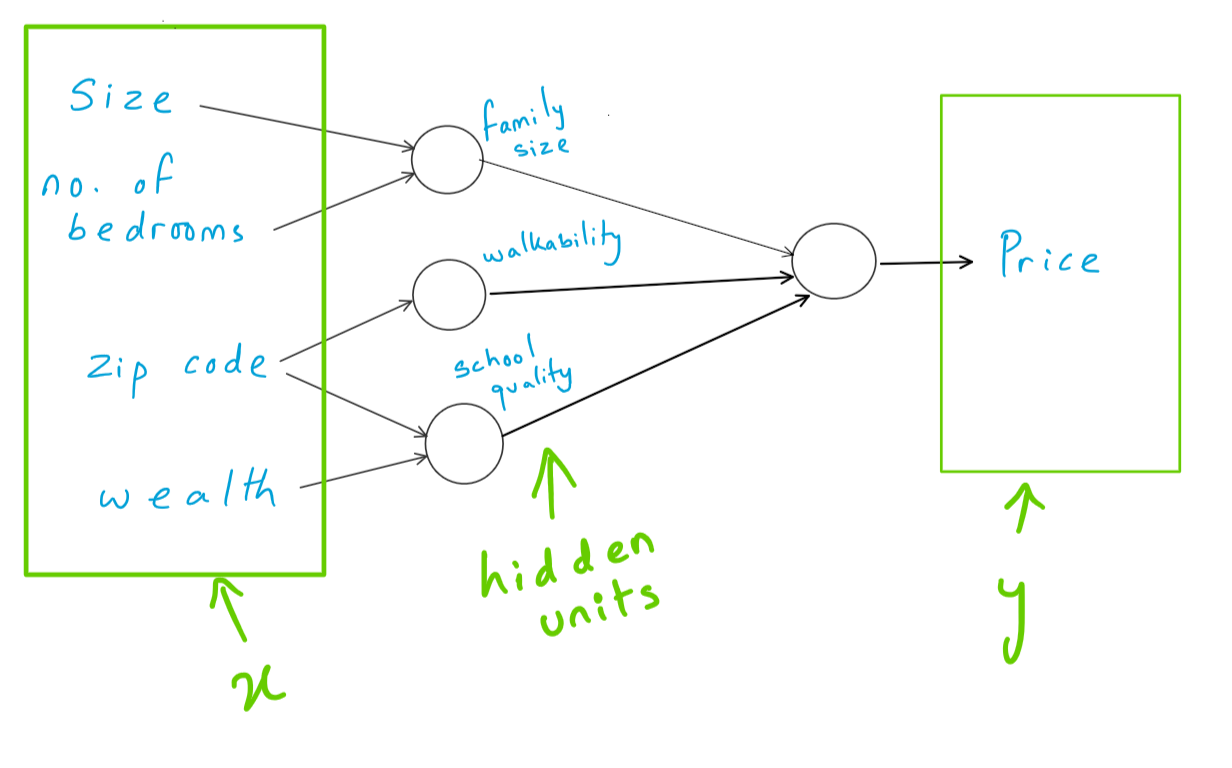 Size
no. of
bedrooms
zip code
wealth
family
size
walkability
school
quality
Price
hidden
units
x
y